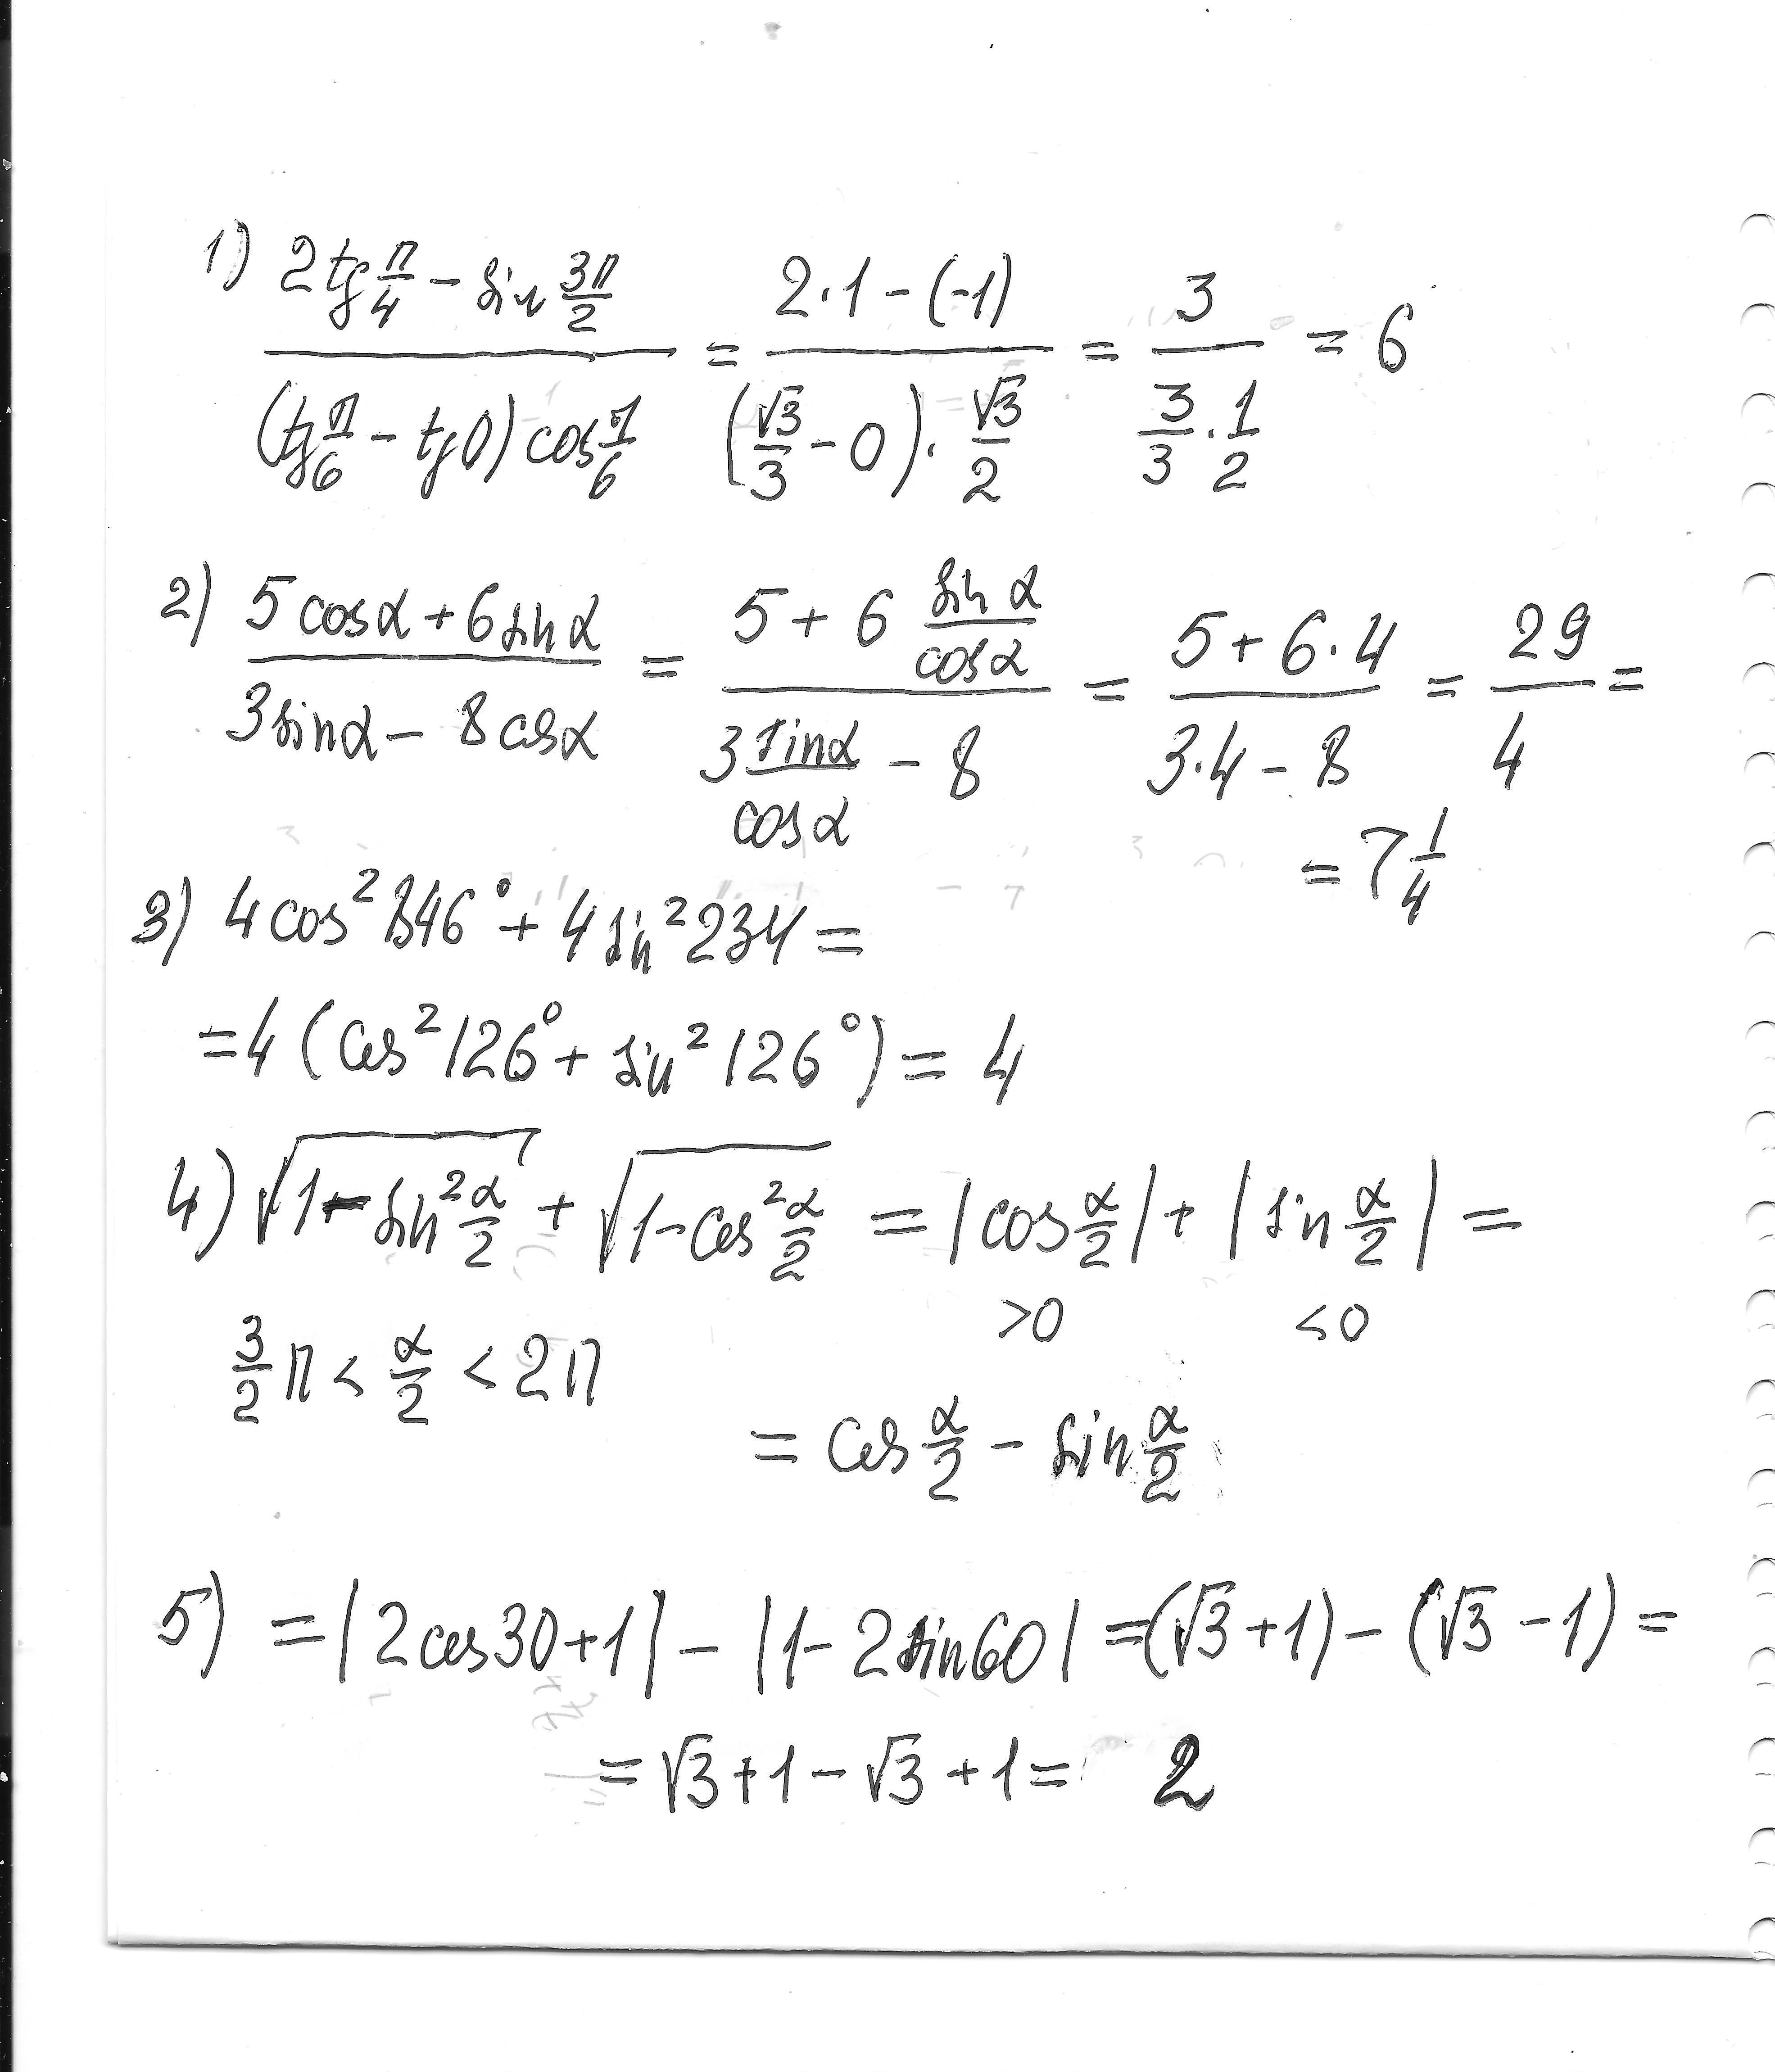 1) (2tg π/4 - sin 3π/2)/((tg π/6 - tg 0) cos π/6) = (2·1 - (-1))/((√3/3 - 0)·√3/2) = 3/(3/3 · 1/2) = 6
2) (5cosα + 6sinα)/(3sinα - 8cosα) = (5 + 6 sinα/cosα)/(3 sinα/cosα - 8) = (5 + 6·4)/(3·4 - 8) = 29/4 =
= 7 1/4
3) 4cos² 846° + 4sin² 234 =
= 4(cos² 126° + sin² 126°) = 4
4) √(1 - sin² α/2) + √(1 - cos² α/2) = |cos α/2| + |sin α/2| =
>0 <0
3/2 π < α/2 < 2π
= cos α/2 - sin α/2
5) = |2cos30 + 1| - |1 - 2sin60| = (√3 + 1) - (√3 - 1) =
= √3 + 1 - √3 + 1 = 2